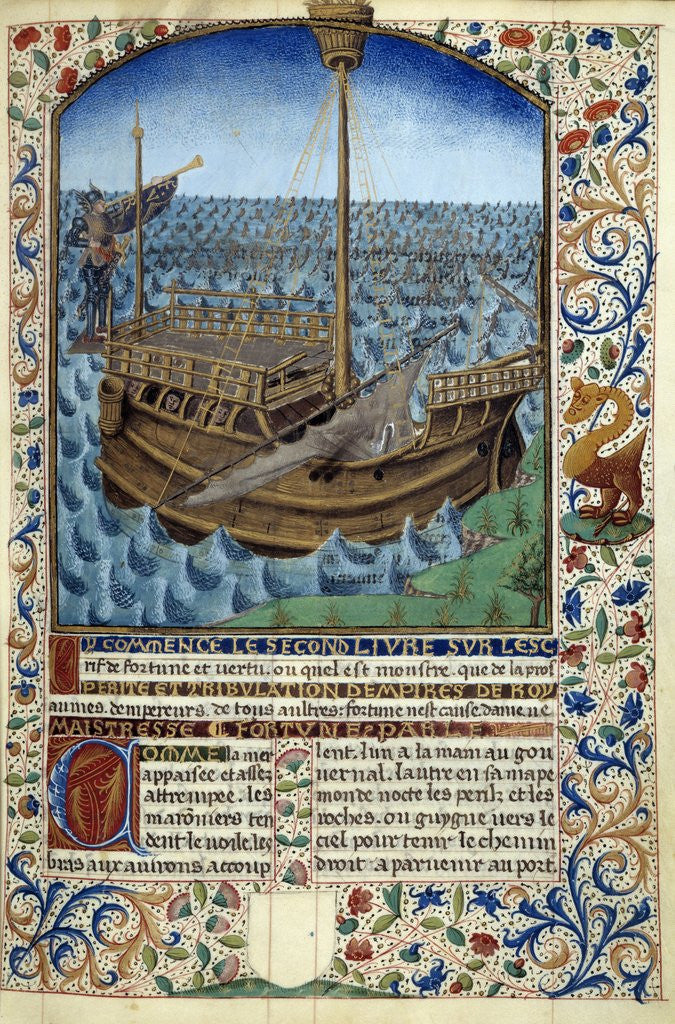 CY COMMENCE LE SECOND LIVRE SVR LESC
rif de fortune et vertu. ou quel est monstre. que de la pros
PERITE ET TRIBVLATION DEMPIRES DE ROY
aumes. dempereurs. de tous aultres: fortune nest cause dame ne
MAISTRESSE ET FORTVNE PARLE
COMME la mer
appaisee et assez
attrempee. les
marōniers ten
dent le voile, les
bras aux auirons accoup
lent. lun a la main au gou
uernal. lautre en sa mape
monde nocte les perilz et les
roches. ou guygne uers le
ciel pour tenir le chemin
droit a paruenir au port